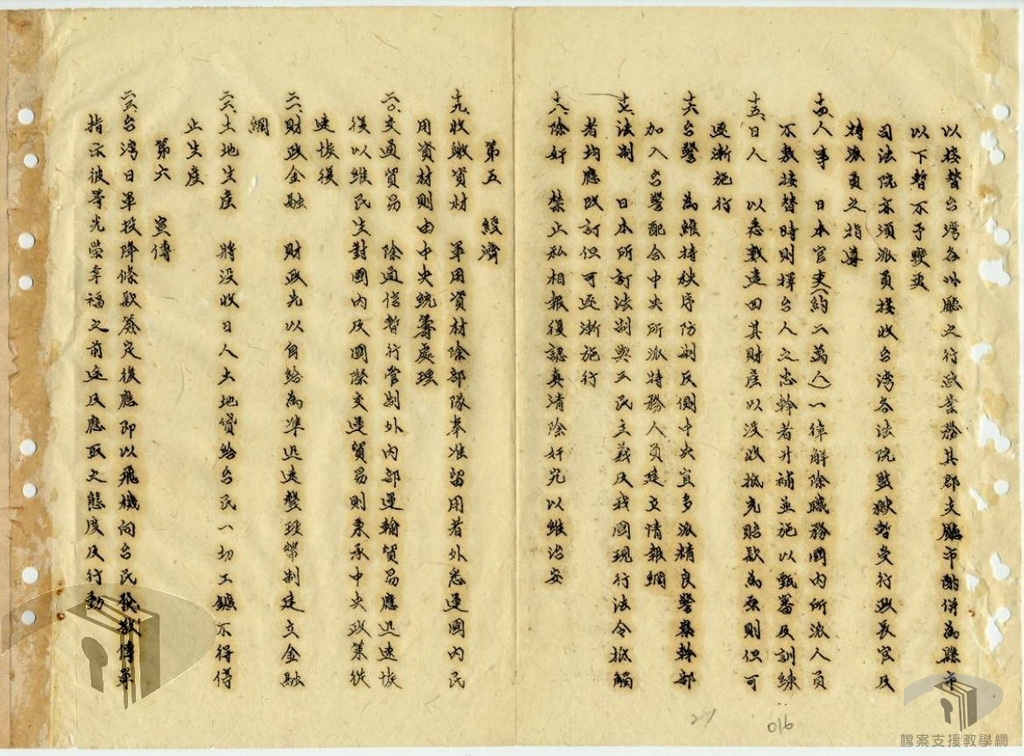 以接替台灣各州廳之行政業務其郡支廳市酌併為縣市
以下暫不予變更
司法院亦須派員接收台灣各法院監獄暫受行政長官及
特派員之指導
十四、人事　日本官吏（約二萬人）一律解除職務國內所派人員
不敷接替時則擇台人之忠幹者升補並施以甄審及訓練
十五、日人　以悉數遣回其財產以沒收抵充賠款為原則但可
逐漸施行
十六、台警　為維持秩序防制反側中央宜多派精良警察幹部
加入台警配合中央所派特務人員建立情報網
十七、法制　日本所訂法制與三民主義及我國現行法令抵觸
者均應改訂但可逐漸施行
十八、除奸　禁止私相報復認真清除奸宄以維治安
第五　經濟
十九、收繳資材　軍用資材除部隊奉准留用者外悉運國內民
用資材則由中央統籌處理
二〇、交通貿易　除通信暫行管制外內部運輸貿易應迅速恢
復以維民生對國內及國際交通貿易則秉承中央政策統
速恢復
二一、財政金融　財政先以自給為準迅速整理幣制建立金融
網
二二、土地生產　將沒收日人土地貸給台民一切工鑛不得停
止生產
第六　宣傳
二三、台灣日軍投降條款簽定後應即以飛機向台民發散傳單
指示彼等光榮幸福之前途及應取之態度及行動
27
016
檔案支援教學網